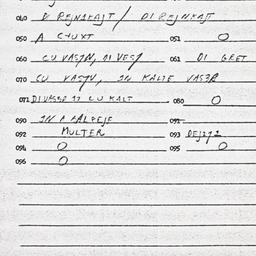 040 D REJNSKAJT / DI REJNKAJT
050 A CHUXT 051 O
060 CU VASJN, DI VESJ 061 DI GRET
070 CU VASJN, IN KALTE VASER
071 DI VASER IZ CU KALT 080 O
090 IN A 091
092 MULTER 093
094 O 095 O
096 O